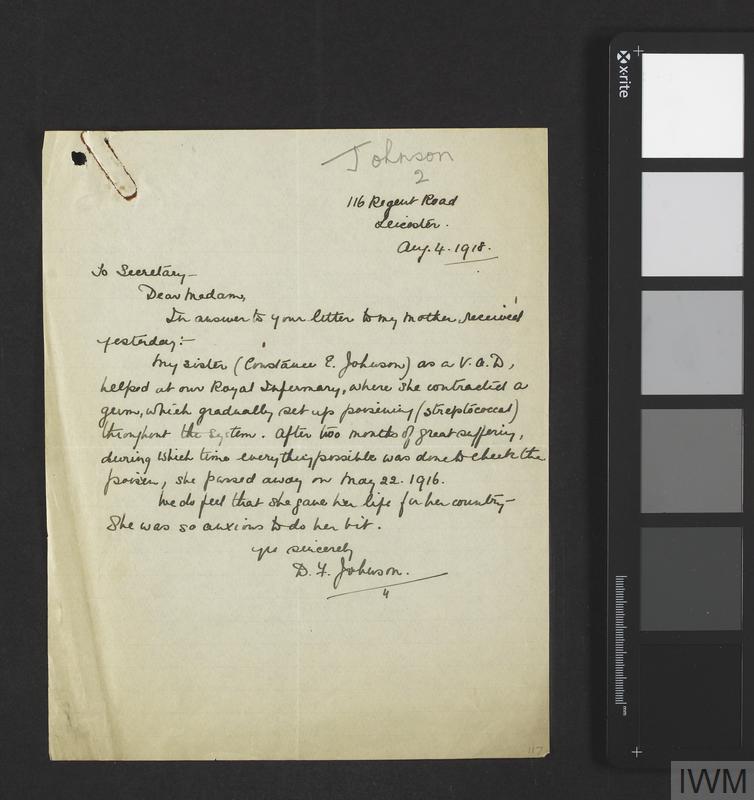 Johnson
2
116 Regent Road
Leicester.
Aug. 4. 1918.
To Secretary—
Dear Madam,
In answer to your letter to my mother, received
yesterday:—
My sister (Constance E. Johnson) as a V.A.D,
helped at our Royal Infirmary, where she contracted a
germ, which gradually set up poisoning (streptococcal)
throughout the system. After two months of great suffering,
during which time everything possible was done to check the
poison, she passed away on May 22. 1916.
We do feel that she gave her life for her country—
She was so anxious to do her bit.
yrs sincerely
D. F. Johnson.
117
x-rite
mm
IWM